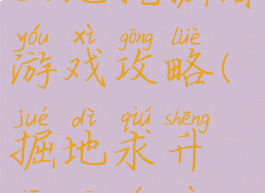 yóu xì gōng lüè
游戏攻略(
jué dì qiú shēng
掘地求升